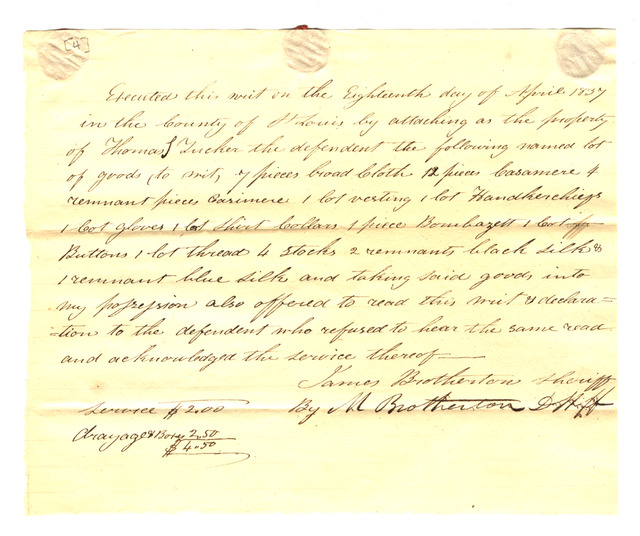 [4]
Executed this writ on the Eighteenth day of April 1837
in the County of St Louis by attaching as the property
of Thomas J Tucker the defendent the following named lot
of goods, to wit, 7 pieces broad Cloth 12 pieces Casamere 4
remnant pieces Casimere 1 lot vesting 1 lot Handkerchiefs
1 Lot gloves 1 lot Shirt Collars 1 piece Bombazett 1 Lot of
Buttons 1 lot thread 4 Stocks 2 remnants black silk &
1 remnant blue silk and taking said goods into
my possession also offered to read this writ & declara-
=tion to the defendent who refused to hear the same read
and acknowledged the service thereof
James Brotherton Sheriff
Service $2.00 By M Brotherton D Shff
drayage & Boxes 2.50
$ 4.50